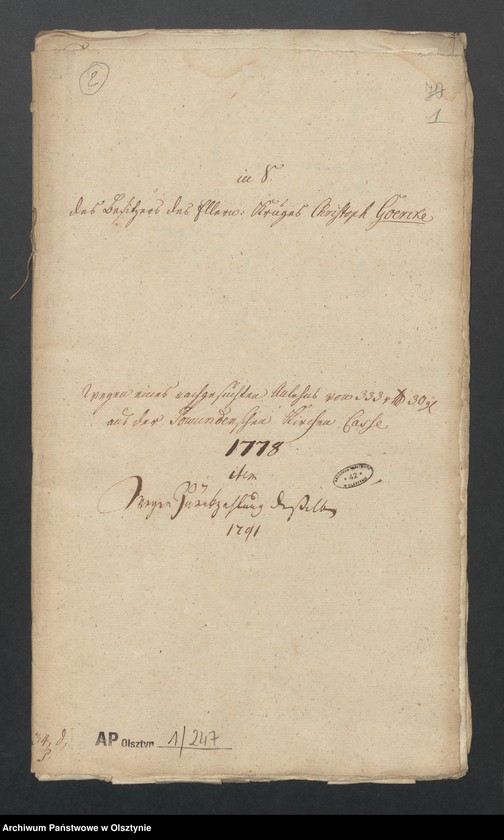 2
1
in S.
des Besitzers des Ellern: Kruges Christoph Goercke
wegen eines nachgesuchten Anlehns von 333 rth 30 gl
aus der schen Kirchen Casse
1778
item
wegen Zurückzahlung deßelben
1791
42
34,
AP Olsztyn 1/247
Archiwum Państwowe w Olsztynie